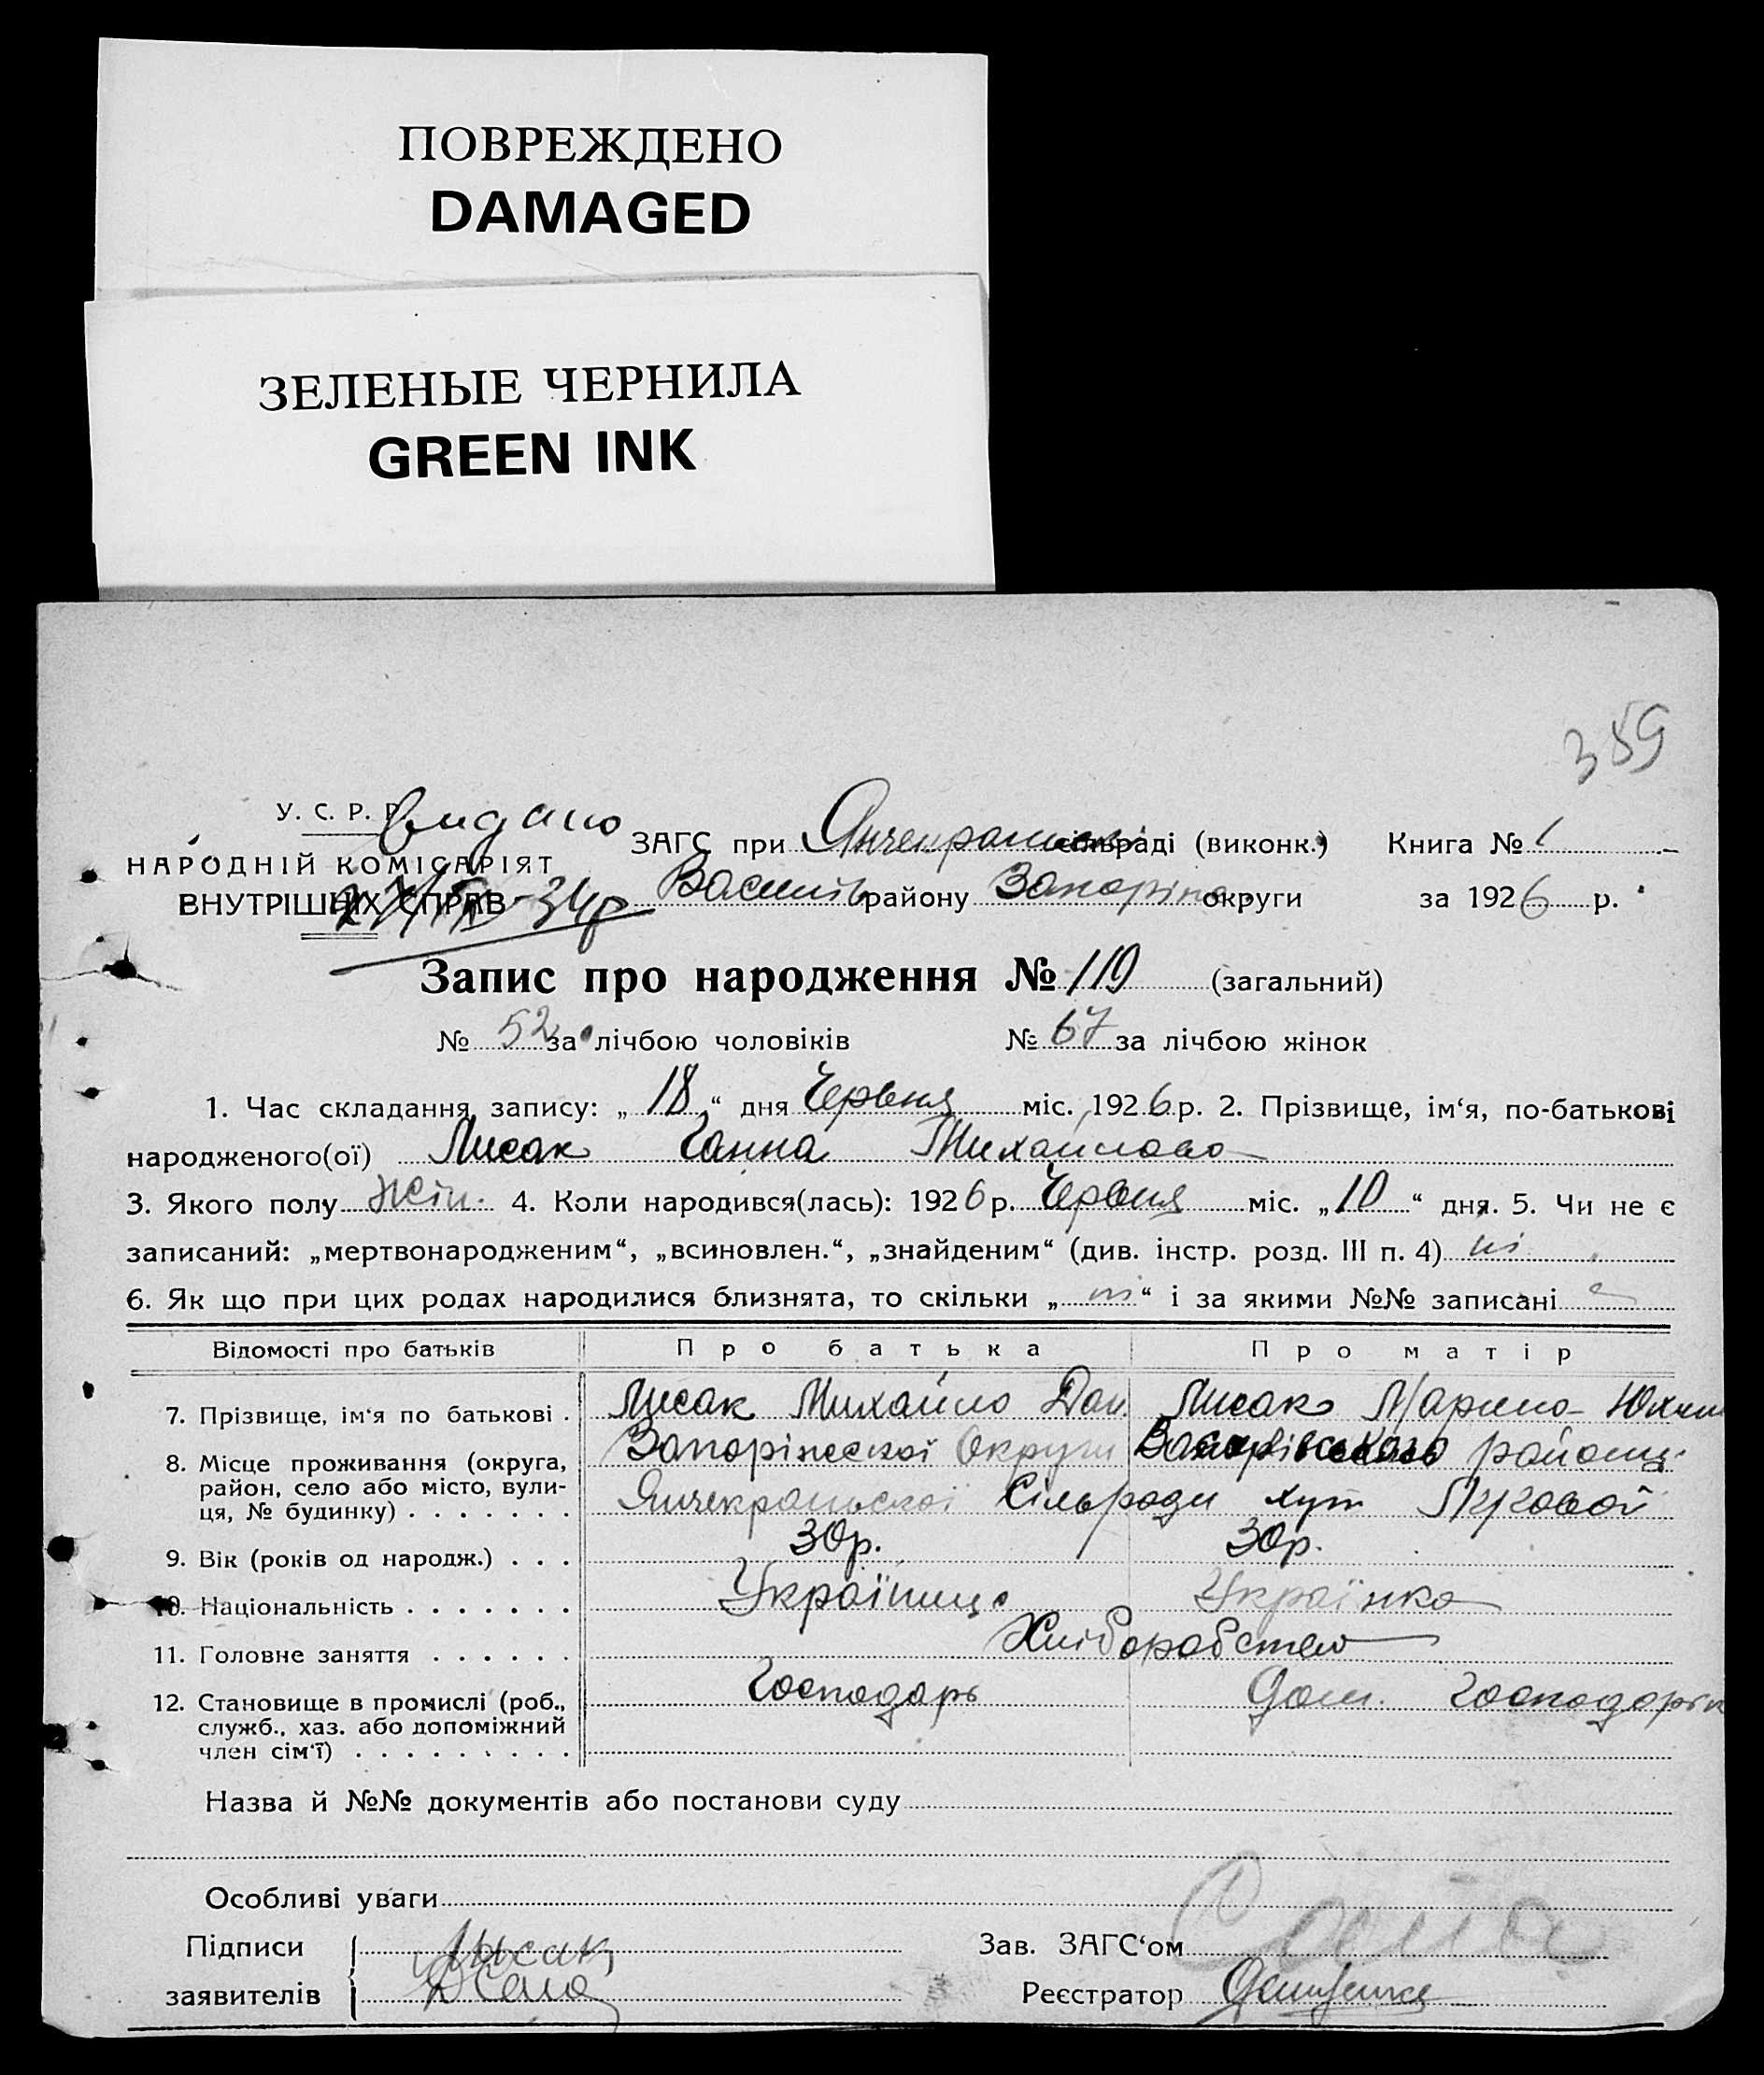 ПОВРЕЖДЕНО
DAMAGED
ЗЕЛЕНЫЕ ЧЕРНИЛА
GREEN INK
359
У. С. Р. Р. видано
ЗАГС при Янчекрацькій сільраді (виконк.) Книга № 1
НАРОДНІЙ КОМІСАРІЯТ
ВНУТРІШНІХ СПРАВ Василів району Запоріж. округи за 1926 р.
34р
Запис про народження № 119 (загальний)
№ 52 за лічбою чоловіків № 67 за лічбою жінок
1. Час складання запису: „18“ дня Червня міс. 1926 р. 2. Прізвище, ім‘я, по-батькові
народженого(ої) Лисак Ганна Михайлова
3. Якого полу жін. 4. Коли народився(лась): 1926 р. Червня міс. „10“ дня. 5. Чи не є
записаний: „мертвонародженим“, „всиновлен.“, „знайденим“ (див. інстр. розд. III п. 4) ні
6. Як що при цих родах народилися близнята, то скільки „ні“ і за якими №№ записані
Відомості про батьків Про батька Про матір
7. Прізвище, ім‘я по батькові . Лисак Михайло Дан. Лисак Марина Юхим
8. Місце проживання (округа, район, село або місто, вулиця, № будинку) Запоріжської Округи Василівського району
Янчекрацької Сільради хут
9. Вік (років од народж.) . . . 30р. 30р.
10. Національність . . . . . . . Українець Українка
11. Головне заняття . . . . . . Хліборобство
12. Становище в промислі (роб., Господарь дом. господарка
служб., хаз. або допоміжний
член сім‘ї) . . . . . . . . .
Назва й №№ документів або постанови суду
Особливі уваги
Підписи Лисак
заявителів
Зав. ЗАГС‘ом
Реєстратор